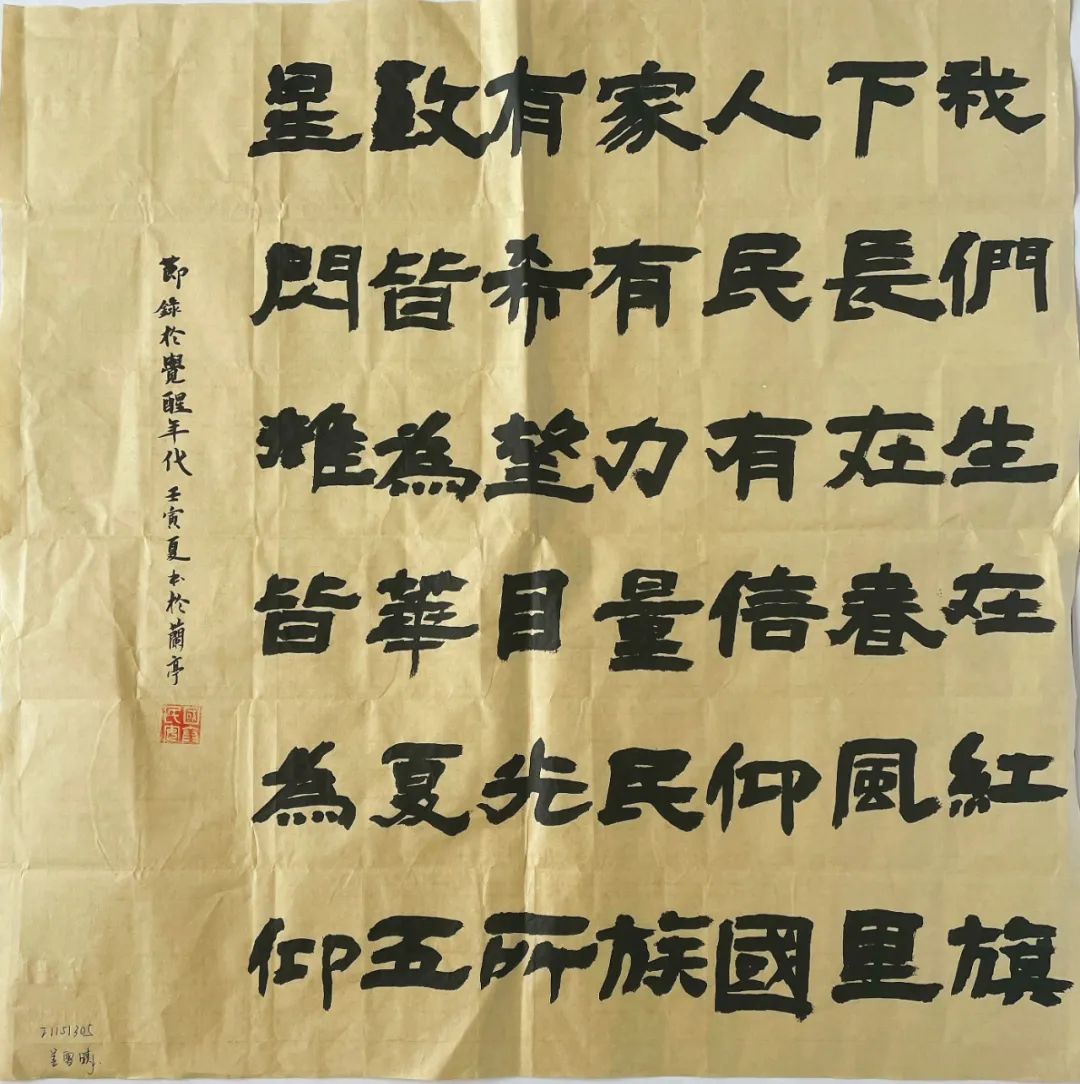 我們生在紅旗
下長在春風里
人民有信仰國
家有力量民族
有希望目光所
致皆為華夏五
星閃耀皆為仰
節錄於覺醒年代 壬寅夏书於蘭亭
21151305